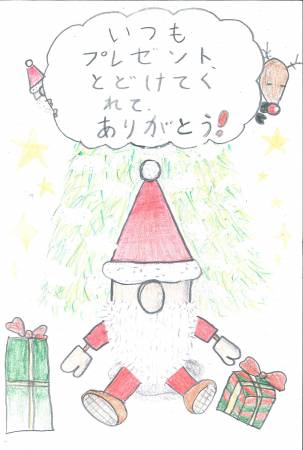 いつも
プレゼント、
とどけてく
れて、
ありがとう!